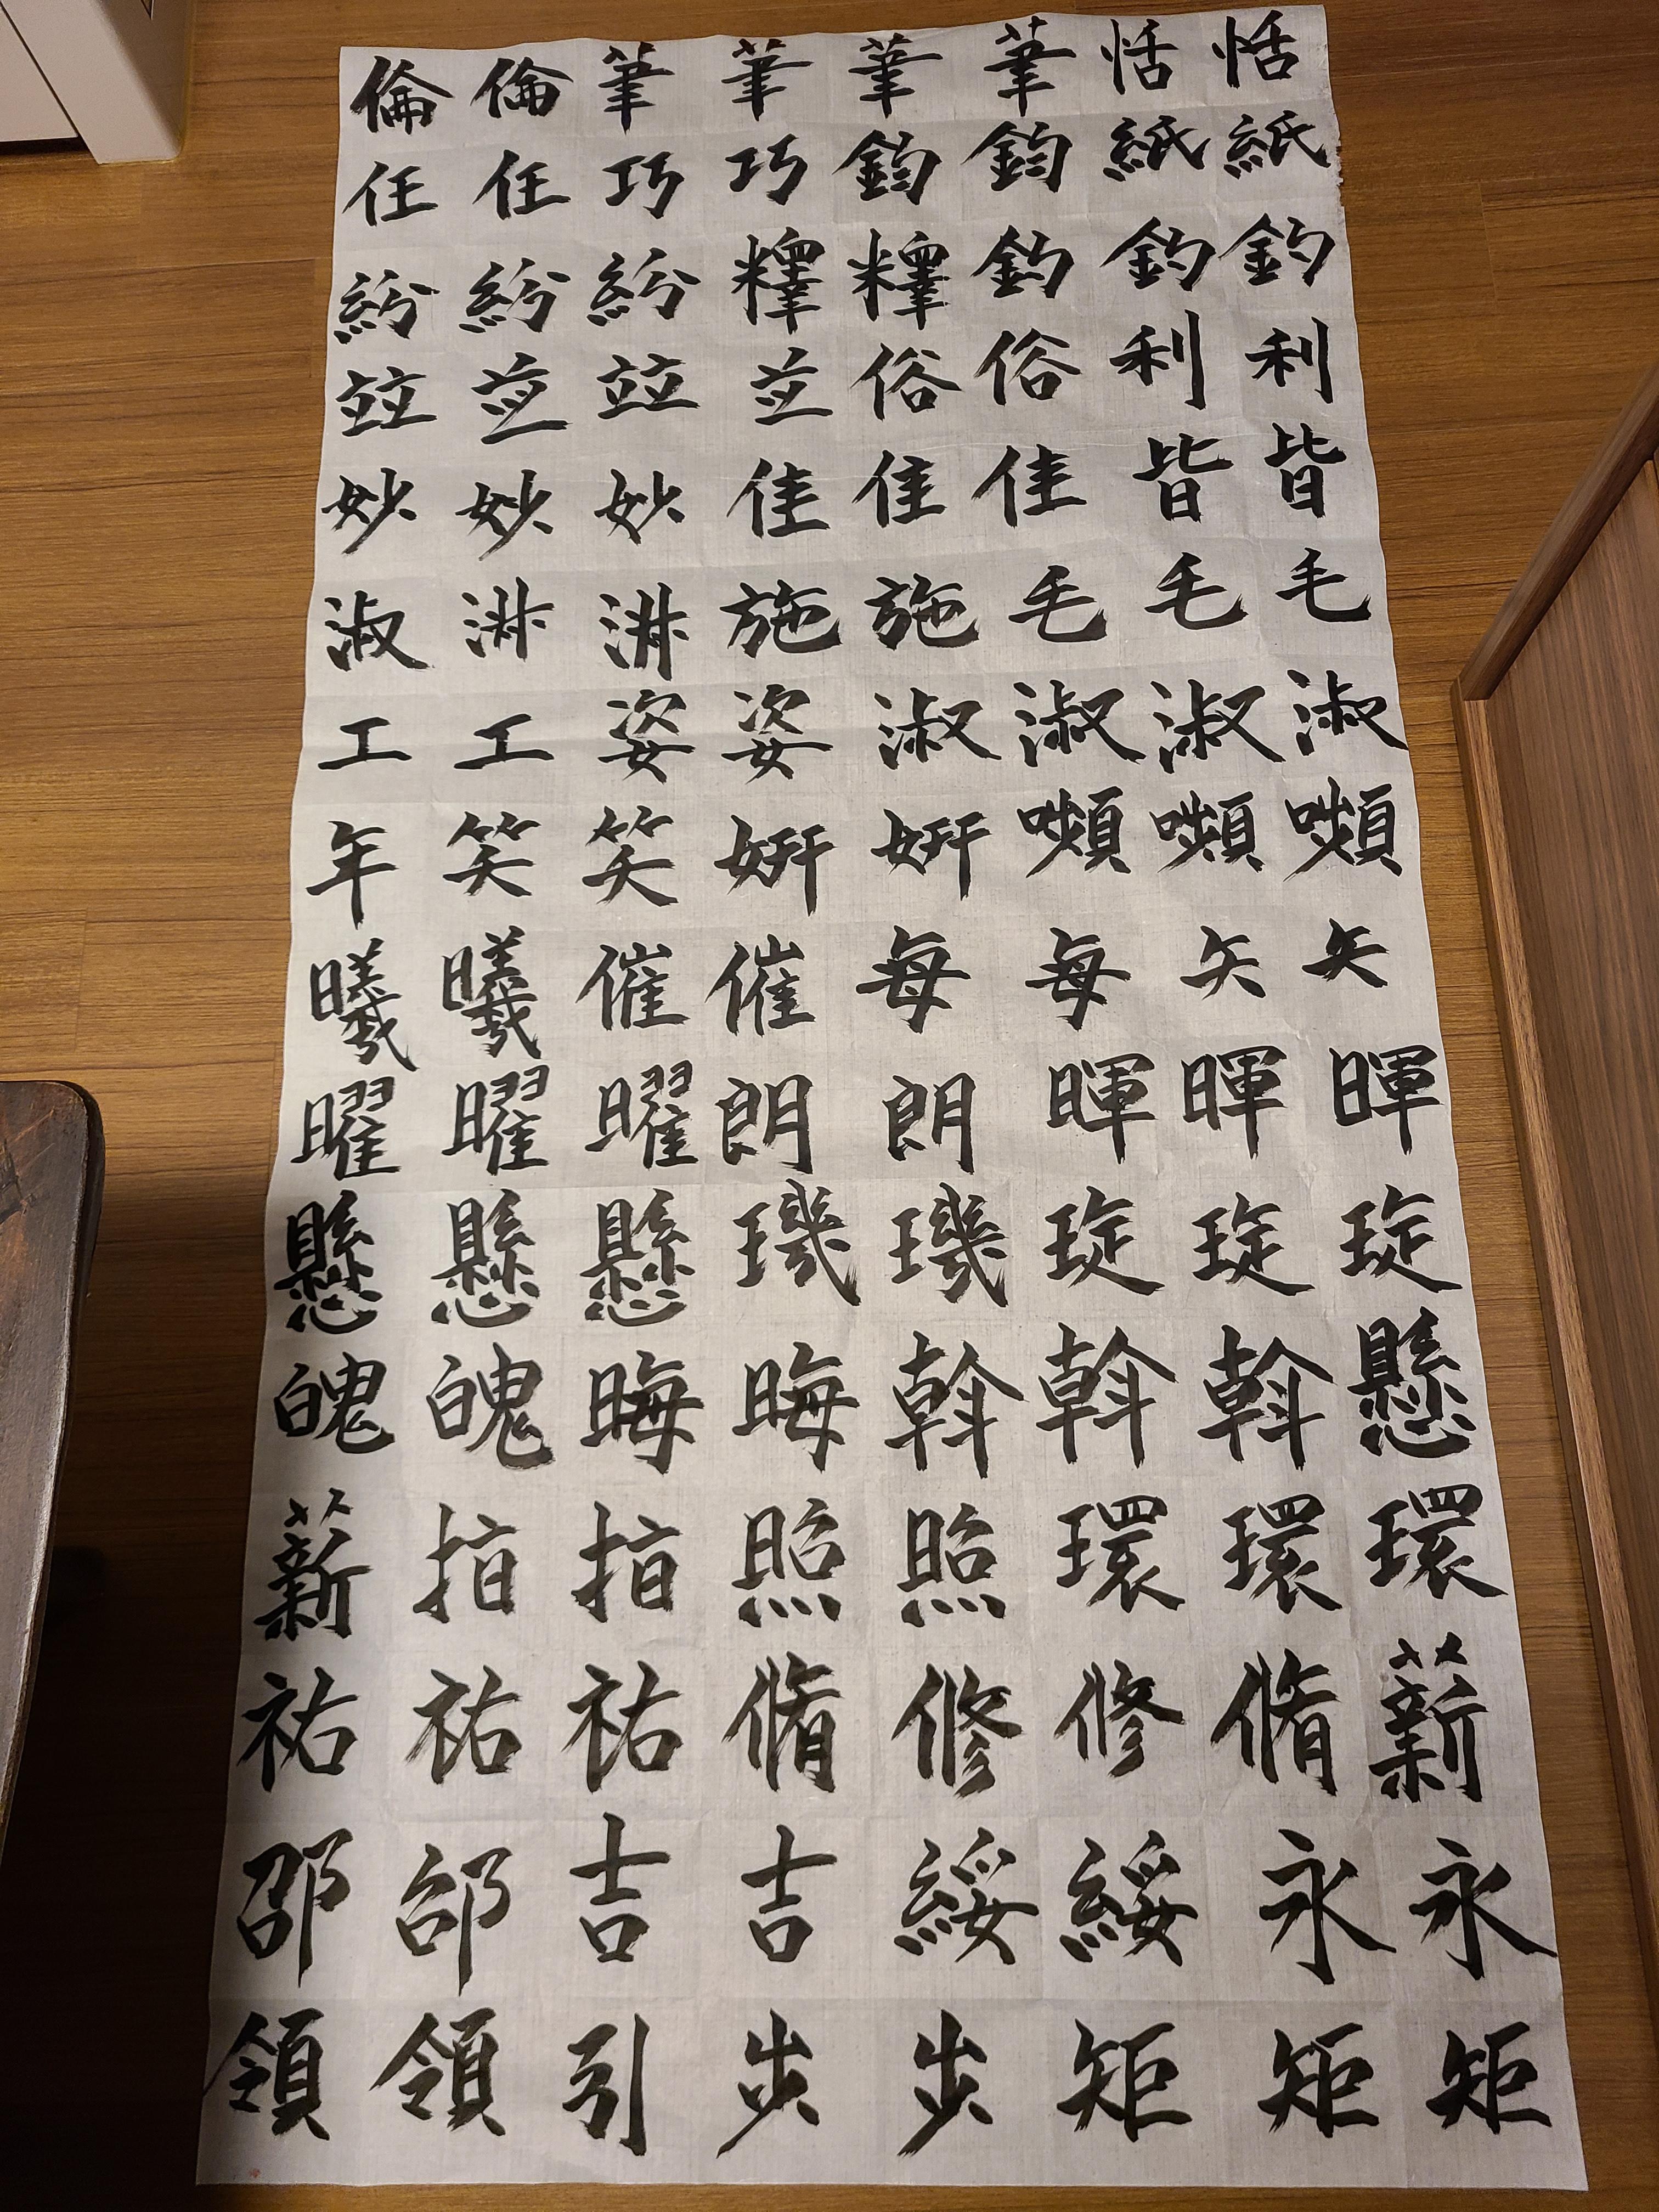 恬恬筆筆筆筆倫倫
紙紙鈞鈞巧巧任任
釣釣釣釋釋紛紛紛
利利俗俗並竝並竝
皆皆佳佳佳妙妙妙
毛毛毛施施淑淑淑
淑淑淑淑姿姿工工
嚬嚬嚬姸姸笑笑年
矢矢每每催催曦曦
暉暉暉朗朗曜曜曜
琁琁琁璣璣懸懸懸
懸斡斡斡晦晦魄魄
環環環照照指指薪
薪脩修修脩祐祐祐
永永綏綏吉吉邵邵
矩矩矩步步引領領